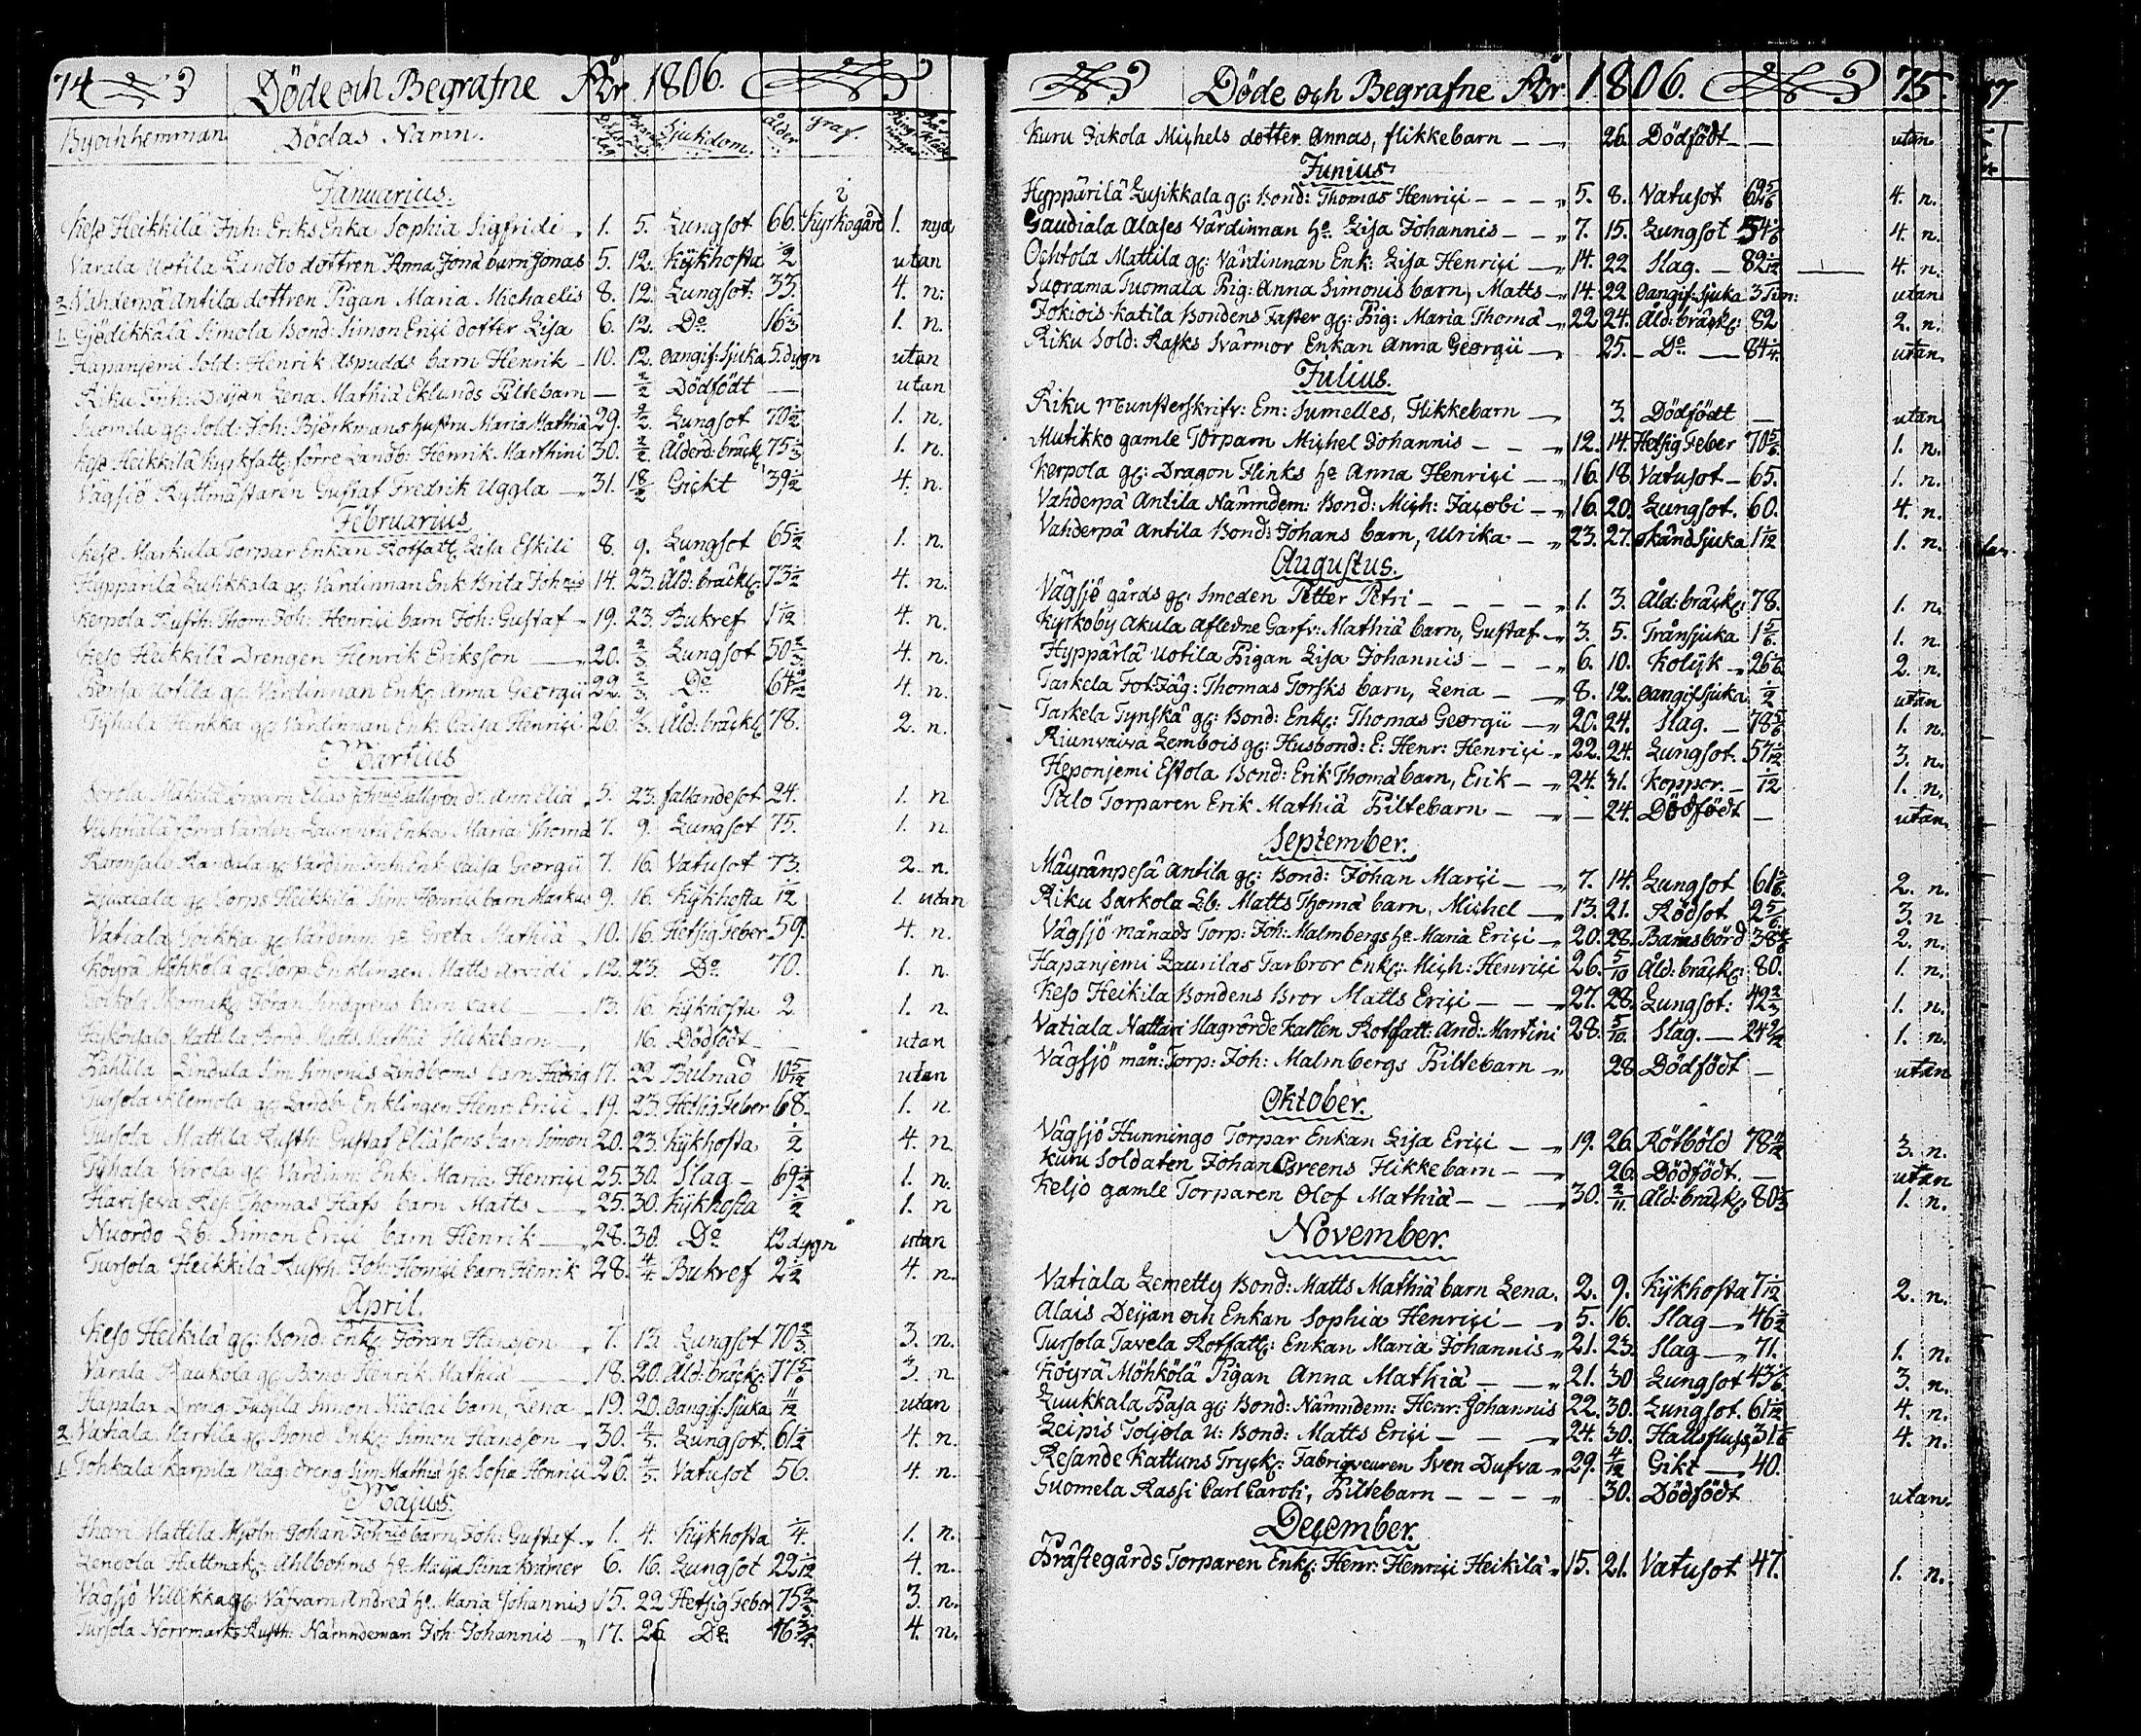 74 Döde och Begrafne År 1806.
By och hemman Dödas Namn. Sjukdom. ålder graf.
Januarius.
Keso Heikkilä Inh: Eriks Enka Sophia Sigfridi 1. 5. Lungsot 66. i Kyrkogård 1. nya
Varala Uotila Landbo dottren Anna Jona barn Jonas 5. 12. Kykhosta ½ utan
2. Vahderpä Antila dottren Pigan Maria Michaelis 8. 12. Lungsot. 33. 4. n.
1. Simola Bond: Simon Erici dotter Lisa 6. 12. Do. 16⅓ 1. n.
Hapaniemi Sold: Henrik Aspudds barn Henrik 10. 12. oangif: Sjuka 5. dygn utan
Riku Inh: Lena Mathiä Eklunds Piltebarn — 2/2 Dödfödt — utan
Suomela gl: Sold: Joh: Björkmans hustru Maria Mathiä 29. 2/2 Lungsot 70½ 1. n.
Keso Heikkilä Kyrkfatt: förre Landb: Henrik Marthini 30. 2/2 Ålderd: bräckl: 75⅓ 1. n.
Vägsjö Ryttmästaren Gustaf Fredrik Uggla 31. 18/2 Gickt 39½ 4. n.
Februarius
Keso Markula Torpar Enkan Rotfatt: Lisa Eskili 8. 9. Lungsot 65½ 1. n.
Hyppärilä Lusikkala gl: Värdinnan Enk: Brita Johnis 14. 23. Åld: bräckl: 73½ 4. n.
Kerpola Rusth: Thom: Joh: Henrici barn Joh: Gustaf 19. 23. Bukref 1 1/12 4. n.
Keso Heikkilä Drengen Henrik Eriksson 20. 2/3 Lungsot 50⅔ 4. n.
Uotila gl: Värdinnan Enkl: Anna Georgii 22. 2/3. Do 64 4. n.
Tyhala Hinkka gl: Värdinnan Enk: Caisa Henrici 26. 2/3. Åld: bräckl: 78. 2. n.
Martius
Mattila Torparn Elias dr. Ann Eliä 5. 23. fallandesot 24. 1. n.
förra Värdin: Enka Maria Thomä 7. 9. Lungsot 75. 1. n.
gl: Värdin: Enk: Caisa Georgii 7. 16. Vatusot 73. 2. n.
Liuxiala gl: Torps Heikkilä Sim: Henrici barn Markus 9. 16. Kykhosta 1/12 1. utan
Vatiala gl: Värdinn: Greta Mathiä 10. 16. Hetsig Feber 59. 4. n.
Köyrä Möhkölä gl: Torp: Enklingen Matts Arvidi 12. 23. Do. 70. 1. n.
barn Carl 13. 16. Kykhosta 2. 1. n.
Mattila Bond: Matts Mathiä Flickebarn 16. Dödfödt — utan
Lindula Sim: Simonis Lindboms barn 17. 22. Bulnad 10 5/12 utan
Tursola Klemola gl: Landb: Enklingen Henr: Erici 19. 23. Hetsig Feber 68. 1. n.
Tursola Mattila Rusth: Gustaf Eliäsons barn Simon 20. 23. Kykhosta ½ 4. n.
Tyhala Yerola gl: Värdinn: Enk: Maria Henrici 25. 30. Slag 69½ 1. n.
Thomas barn Matts 25. 30. Kykhosta ½ 1. n
Nuordo Lb: Simon Erici barn Henrik 28. 30. Do 12 dygn utan
Tursola Heikkilä Rusth: Joh: barn Henrik 28. 4/4 Bukref 2½ 4. n.
April.
Keso Heikilä gl: Bond: Enkl: Jöran Hansson 7. 13. Lungsot 70⅔ 3. n.
Varala gl: Bond: Henrik Mathiä 18. 20. Åld: bräckl: 77 5/6 3. n.
Simon Nicolai barn, Lena 19. 20. oangif: Sjuka 11/12 utan
2. Vatiala Martila gl: Bond: Enkl: Simon Hansson 30. 4/5 Lungsot. 61½ 4. n.
1. Tohkala Karpila Måg: dreng Sim: Mathiä hu: Sofia Henrici 26. 4/5 Vatusot 56. 4. n.
Majus.
Ihari Mattila Mjöln: Johan Johnis barn, Joh: Gustaf 1. 4. Kykhosta ¼. 1. n.
Lendola Hattmak: Ahlbohms hu: Maja Stina Krämer 6. 16. Lungsot 22 1/12 4. n.
Vägsjö Vilikka gl: Andreä hu: Maria Johannis 15. 22. Hetsig Feber 75⅔ 3. n.
Tursola Norrmarks Rusth: Nämndeman Joh: Johannis 17. 26. Do: 46¾ 4. n.
Döde och Begrafne År 1806. 75.
Kuru Jakola Michels dotter Annas, flikkebarn 26. Dödfödt — utan
Junius.
Hyppärilä Lusikkala gl: Bond: Thomas Henrici 5. 8. Vatusot 69 5/6 4. n.
Gaudiala Alases Värdinnan hu. Lisa Johannis 7. 15. Lungsot 54⅙ 4. n.
Ochtola Mattila gl: Värdinnan Enk: Lisa Henrici 14. 22 Slag. 82 1/12 4. n.
Suorama Tuomala Pig: Anna Simonis barn, Matts 14. 22 oangif: Sjuka 3 Tim: utan
Jokiois Katila Bondens Faster gl: Pig: Maria Thomä 22 24. Åld: bräckl: 82 2. n.
Riku Sold: Rasks Svärmor Enkan Anna Georgii 25. Do. 84¼. utan.
Julius.
Riku Munsterskrifv: Em: Sumelles, Flikkebarn 3. Dödfödt — utan
Mutikko gamle Torparn Michel Johannis 12. 14. Hetsig Feber 70 5/6 1. n.
Kerpola gl: Dragon Flinks hu Anna Henrici 16. 18. Vatusot 65. 1. n.
Vahderpä Antila Nämndem: Bond: Mich: Jacobi 16. 20. Lungsot. 60. 4. n.
Vahderpä Antila Bond: Johans barn, Ulrika 23. 27. okänd Sjuka 1 1/12 1. n.
Augustus.
Vägsjö gårds gl: Smeden Petter Petri 1. 3. Åld: bräckl: 78. 1. n.
Kyrkoby Akula afledne Garfv: Mathiä barn, Gustaf 3. 5. Trånsjuka 1 5/6 1. n.
Hyppärlä Uotila Pigan Lisa Johannis 6. 10. Kolijk 26⅙ 2. n.
Tarkela Fot Jäg: Thomas Torsks barn, Lena 8. 12. oangif Sjuka ½ utan
Tarkela Tynskä gl: Bond: Enkl: Thomas Georgii 20. 24. Slag. 78 5/6 1. n.
Riunvaiva Lembois gl: Husbond: E: Henr: Henrici 22. 24. Lungsot. 57 1/12 3. n.
Heponjemi Estola Bond: Erik Thomä barn, Erik 24. 31. Koppor. 1/12 1. n.
Palo Torparen Erik Mathiä Piltebarn — 24. Dödfödt — utan.
September.
Mäyränpesä Antila gl: Bond: Johan Marci 7. 14. Lungsot 61⅚ 2. n.
Riku Sarkola Lb: Matts Thomä barn, Michel 13. 21. Rödsot 2 5/6 3. n
Vägsjö månads Torp: Joh: Malmbergs hu Maria Erici 20. 28. Barnsbörd 38 2. n.
Hapanjemi Laurilas Farbror Enkl: Mich: Henrici 26. 5/10 Åld: bräckl: 80. 1. n.
Keso Heikila Bondens Bror Matts Erici 27. 28. Lungsot: 42⅔ 1. n.
Vatiala Nattari Slagrörde Katten Rotfatt: And: Martini 28. 5/10. Slag. 24 1. n.
Vägsjö mån: Torp: Joh: Malmbergs Piltebarn 28 Dödfödt — utan
Oktober.
Vägsjö Hunningo Torpar Enkan Lisa Erici 19. 26. Rötböld 78 3. n.
Kuru Soldaten Johan Greens Flikkebarn 26. Dödfödt. — utan
Keljo gamle Torparen Olof Mathiä 30. 2/11 Åld: bräckl: 80⅓ 1. n.
November.
Vatiala Lemetty Bond: Matts Mathiä barn Lena. 2. 9. Kykhosta 7 1/12 2. n.
Alais Deijan och Enkan Sophia Henrici 5. 16. Slag 46½
Tursola Tavela Rotfatt: Enkan Maria Johannis 21. 23. Slag 71. 1. n.
Höyrä Möhkölä Pigan Anna Mathiä 21. 30 Lungsot 43⅙ 3. n.
Luukkala Pasa gl: Bond: Nämndem: Henr: Johannis 22. 30. Lungsot. 61 1/12 4. n.
Leipis Toljola U: Bond: Matts Erici 24. 30. Hallsfluss 31⅙ 4. n.
Resande Kattuns Tryck: Fabriqueuren Sven Dufva 29. 4/12 Gikt 40.
Suomela Rassi Carl Caroli, Piltebarn 30. Dödfödt utan.
December.
Prästegårds Torparen Enkl: Henr: Henrici Heikilä 15. 21. Vatusot 47. 1. n.